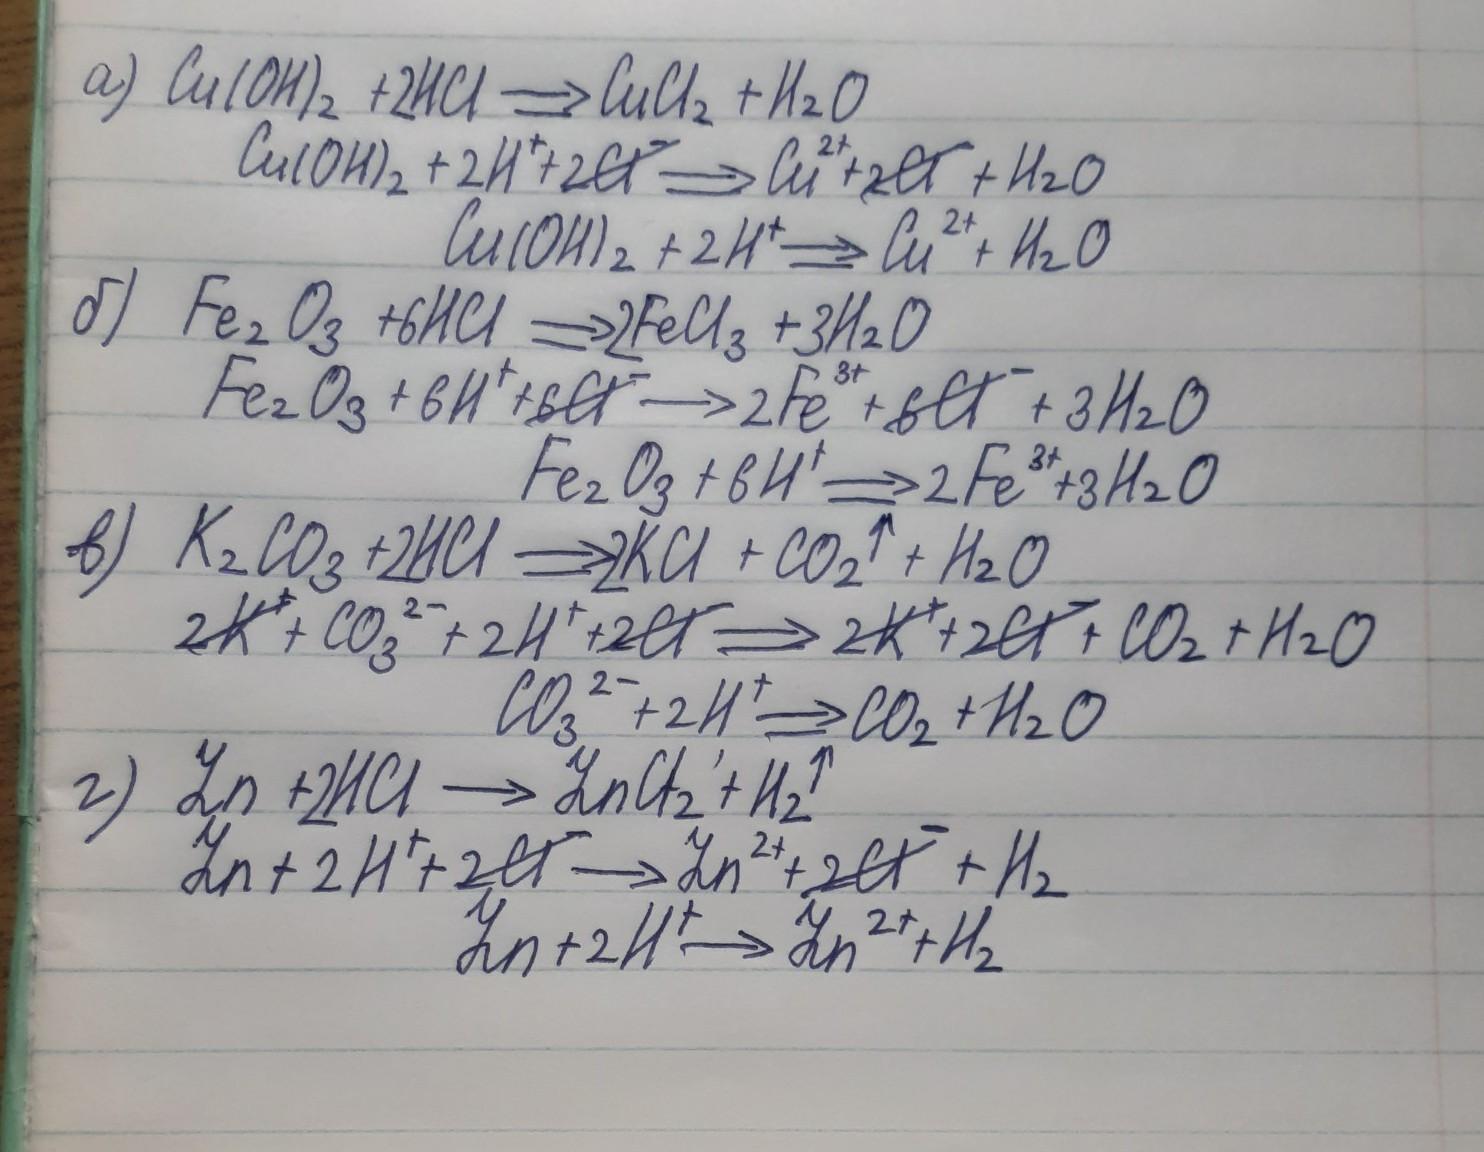 а) Cu(OH)₂ +2HCl ⟹ CuCl₂ + H₂O
Cu(OH)₂ + 2H⁺ + 2Cl⁻ ⟹ Cu²⁺ + 2Cl⁻ + H₂O
Cu(OH)₂ + 2H⁺ ⟹ Cu²⁺ + H₂O
б) Fe₂O₃ +6HCl ⟹ 2FeCl₃ + 3H₂O
Fe₂O₃ + 6H⁺ + 6Cl⁻ ⟶ 2Fe³⁺ + 6Cl⁻ + 3H₂O
Fe₂O₃ + 6H⁺ ⟹ 2Fe³⁺ + 3H₂O
в) K₂CO₃ +2HCl ⟹ 2KCl + CO₂↑ + H₂O
2K⁺ + CO₃²⁻ + 2H⁺ + 2Cl⁻ ⟹ 2K⁺ + 2Cl⁻ + CO₂ + H₂O
CO₃²⁻ + 2H⁺ ⟹ CO₂ + H₂O
г) Zn +2HCl ⟶ ZnCl₂ + H₂↑
Zn + 2H⁺ + 2Cl⁻ ⟶ Zn²⁺ + 2Cl⁻ + H₂
Zn + 2H⁺ ⟶ Zn²⁺ + H₂